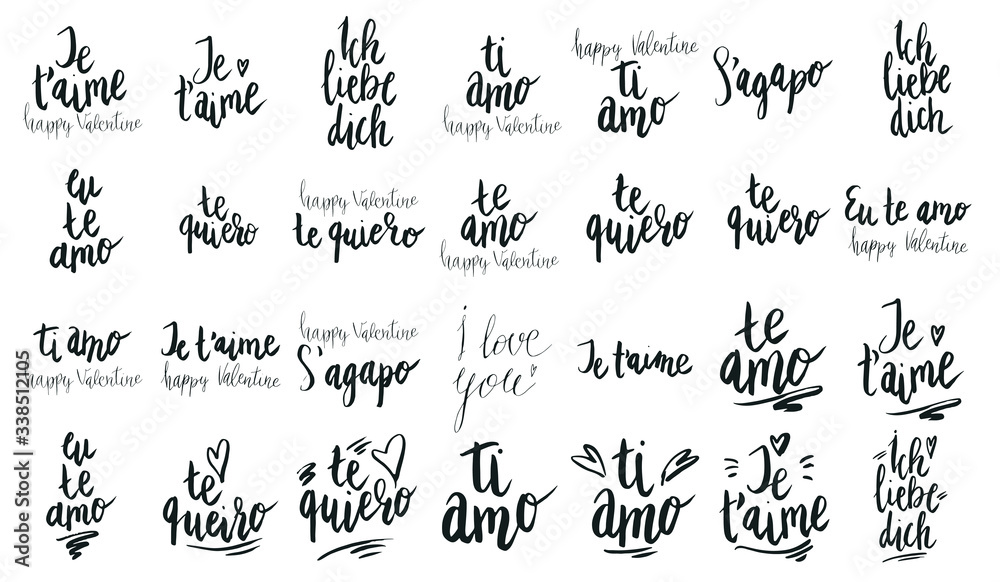 Je
t'aime
happy Valentine
Je
t'aime
Ich
liebe
dich
ti
amo
happy Valentine
happy Valentine
ti
amo
S'agapo
Ich
liebe
dich
eu
te
amo
te
quiero
happy Valentine
te quiero
te
amo
happy Valentine
te
quiero
te
quiero
Eu te amo
happy Valentine
ti amo
happy Valentine
Je t'aime
happy Valentine
happy Valentine
S'agapo
i love
you
Je t'aime
te
amo
Je
t'aime
eu
te
amo
te
queiro
te
quiero
Ti
amo
ti
amo
Je
t'aime
Ich
liebe
dich
Adobe Stock | #338512105